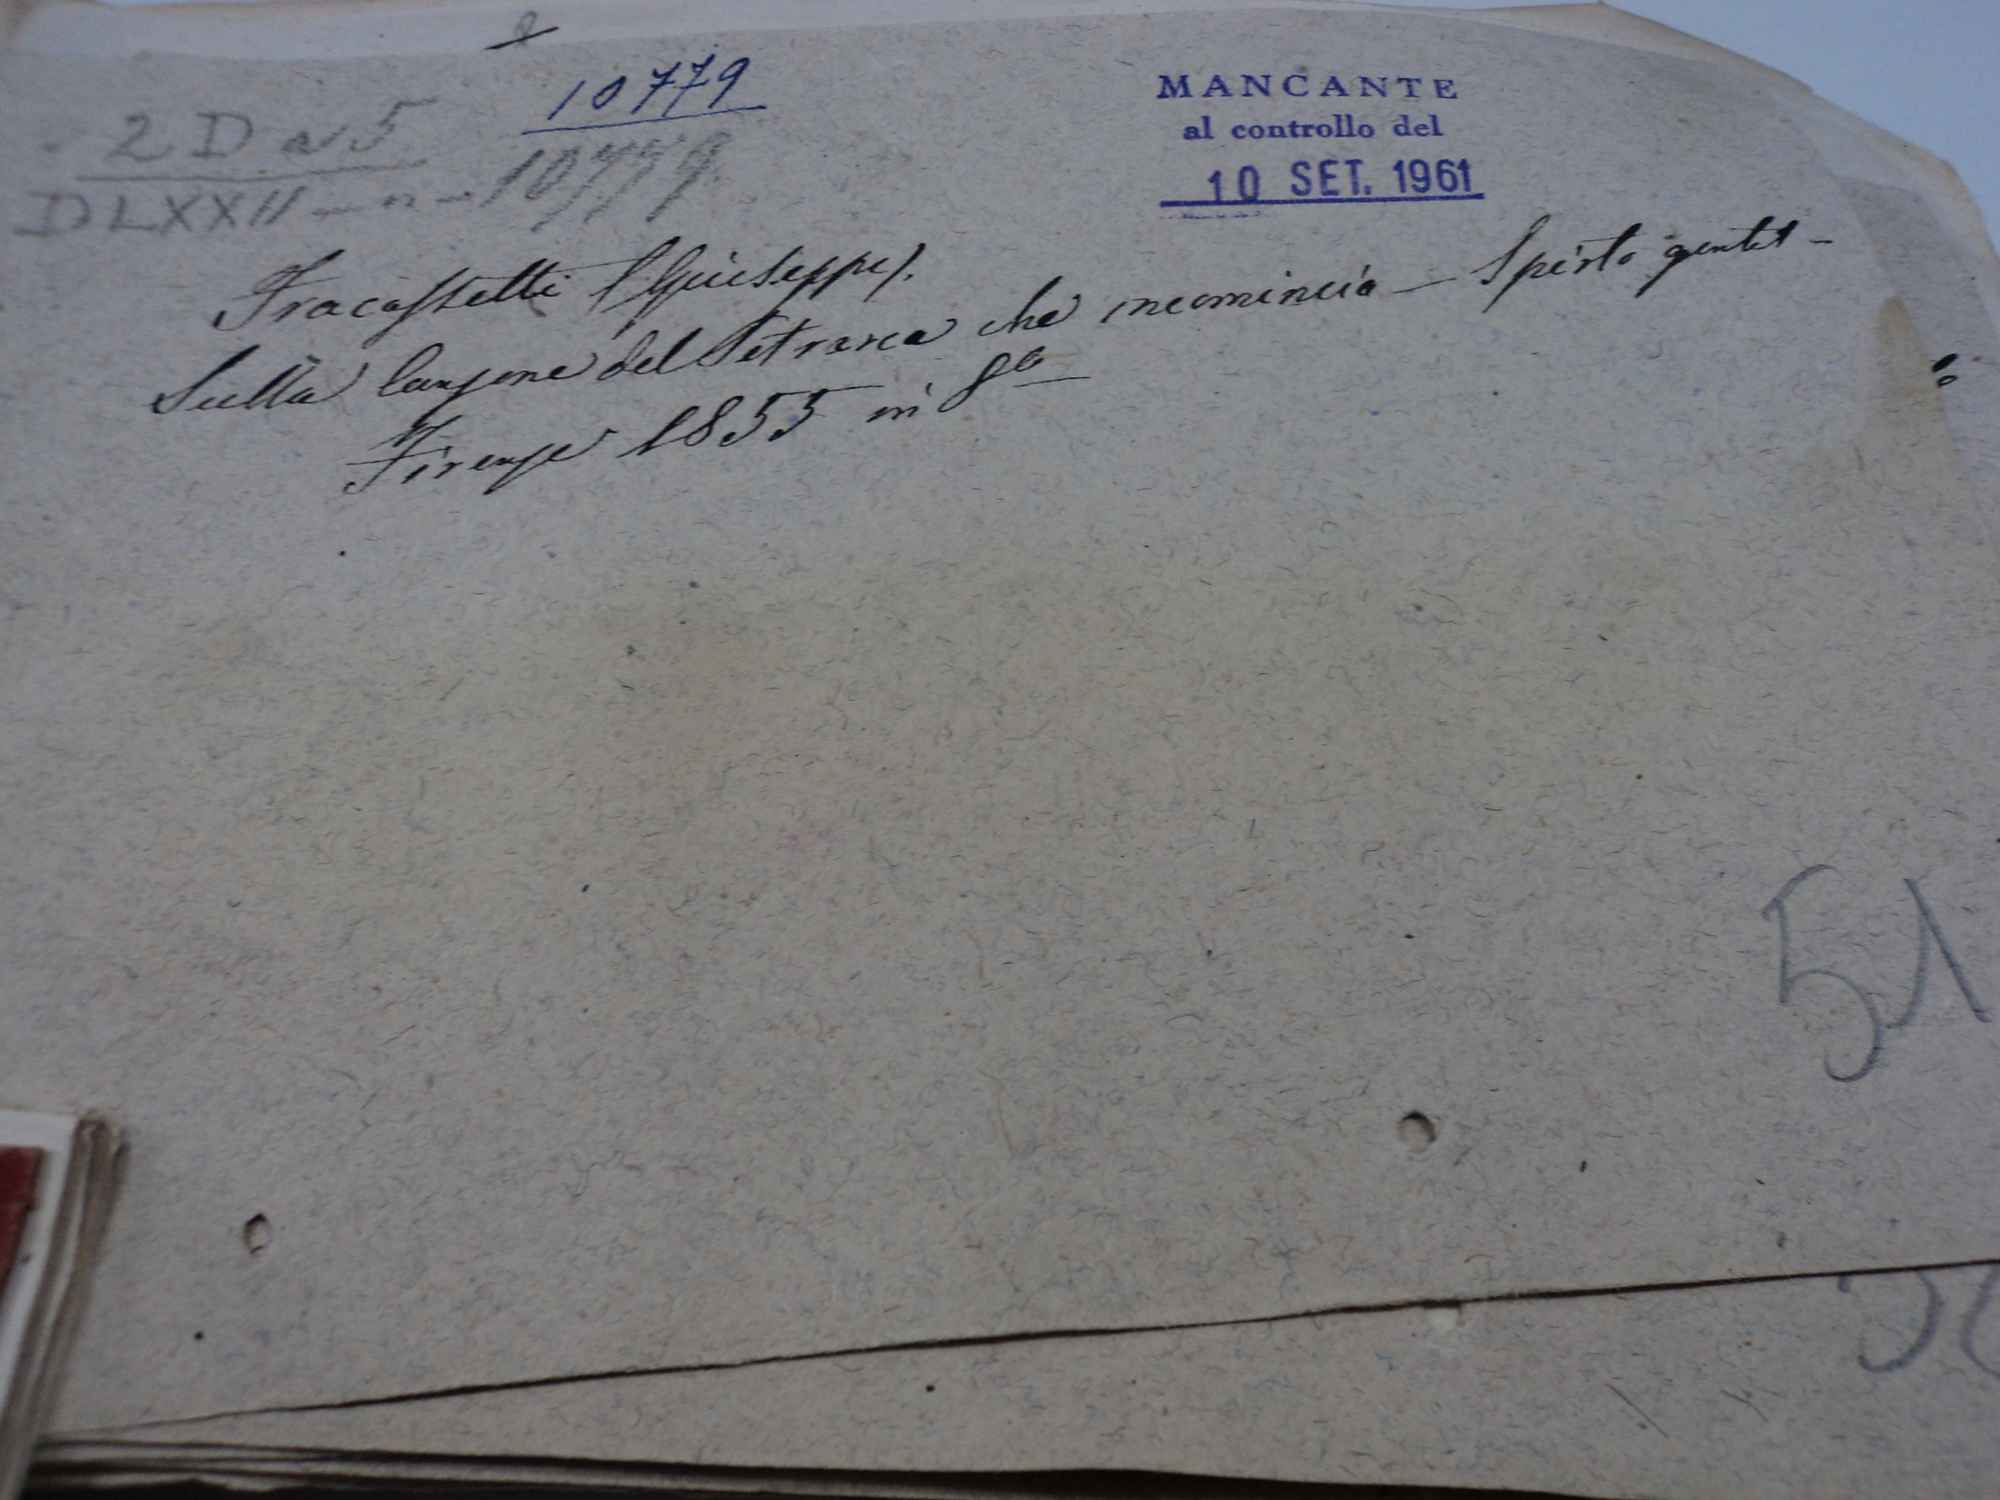 10779
2 D a 5
DLXXII — n — 10779
MANCANTE
al controllo del
10 SET. 1961
Fracassetti (Giuseppe).
Sulla Canzone del Petrarca che incomincia — Spirto gentil —
Firenze 1855 in 8º
51